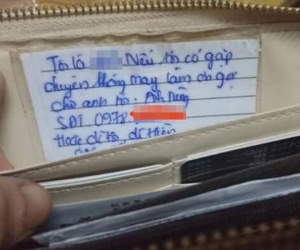 Tôi là Nếu tôi có gặp
chuyện không may làm ơn gọi
cho anh tôi: Anh
SĐT 0978
Hoặc dì tôi, dì